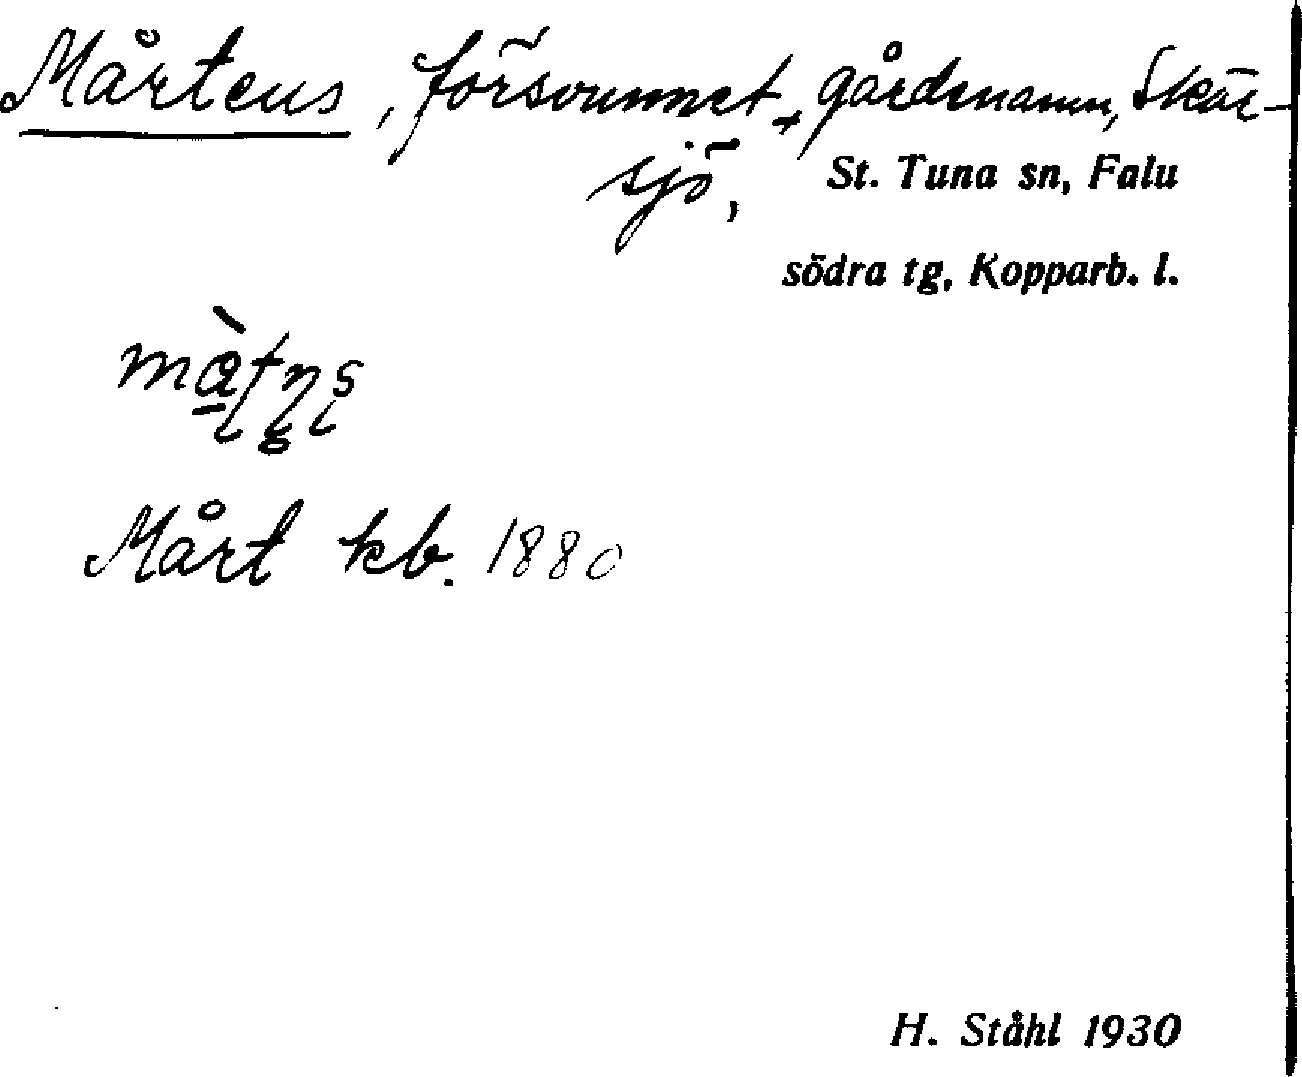 Mårtens, försvunnet gårdsnamn, Skär-
sjö, St. Tuna sn, Falu
södra tg, Kopparb. l.
Mårt kb. 1880
H. Ståhl 1930